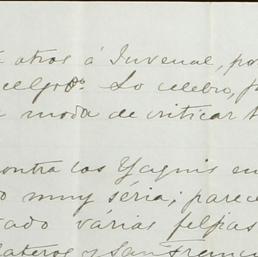 otros á Juvenal, po
celgro. Lo celebro, p
moda de criticar t
contra los Yaquis en
o muy séria; parece
tado várias felpas
lateros y San Franc